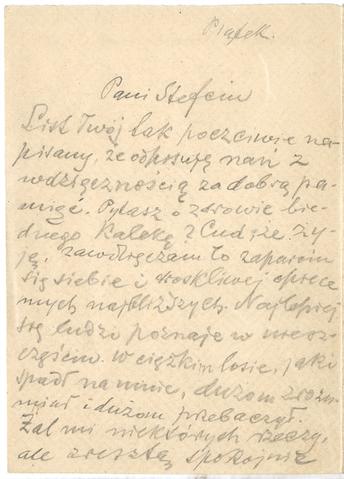 Piątek.
Pani Stefciu
List Twój tak poczciwie na-
pisany, że odpisuję nań z
wdzięcznością za dobrą pa-
mięć. Pytasz o zdrowie bie-
dnego Kaleką? Cud, że ży-
ję, zawdzięczam to zaparciu
się siebie i troskliwej opiece
mych najbliższych. Najlepiej
się ludzi poznaje w niesz-
częściu. W ciężkim losie, jaki
spadł na mnie, dużom zrozu-
miał i dużom przebaczył.
Żal mi niektórych rzeczy,
ale zresztą spokojnie